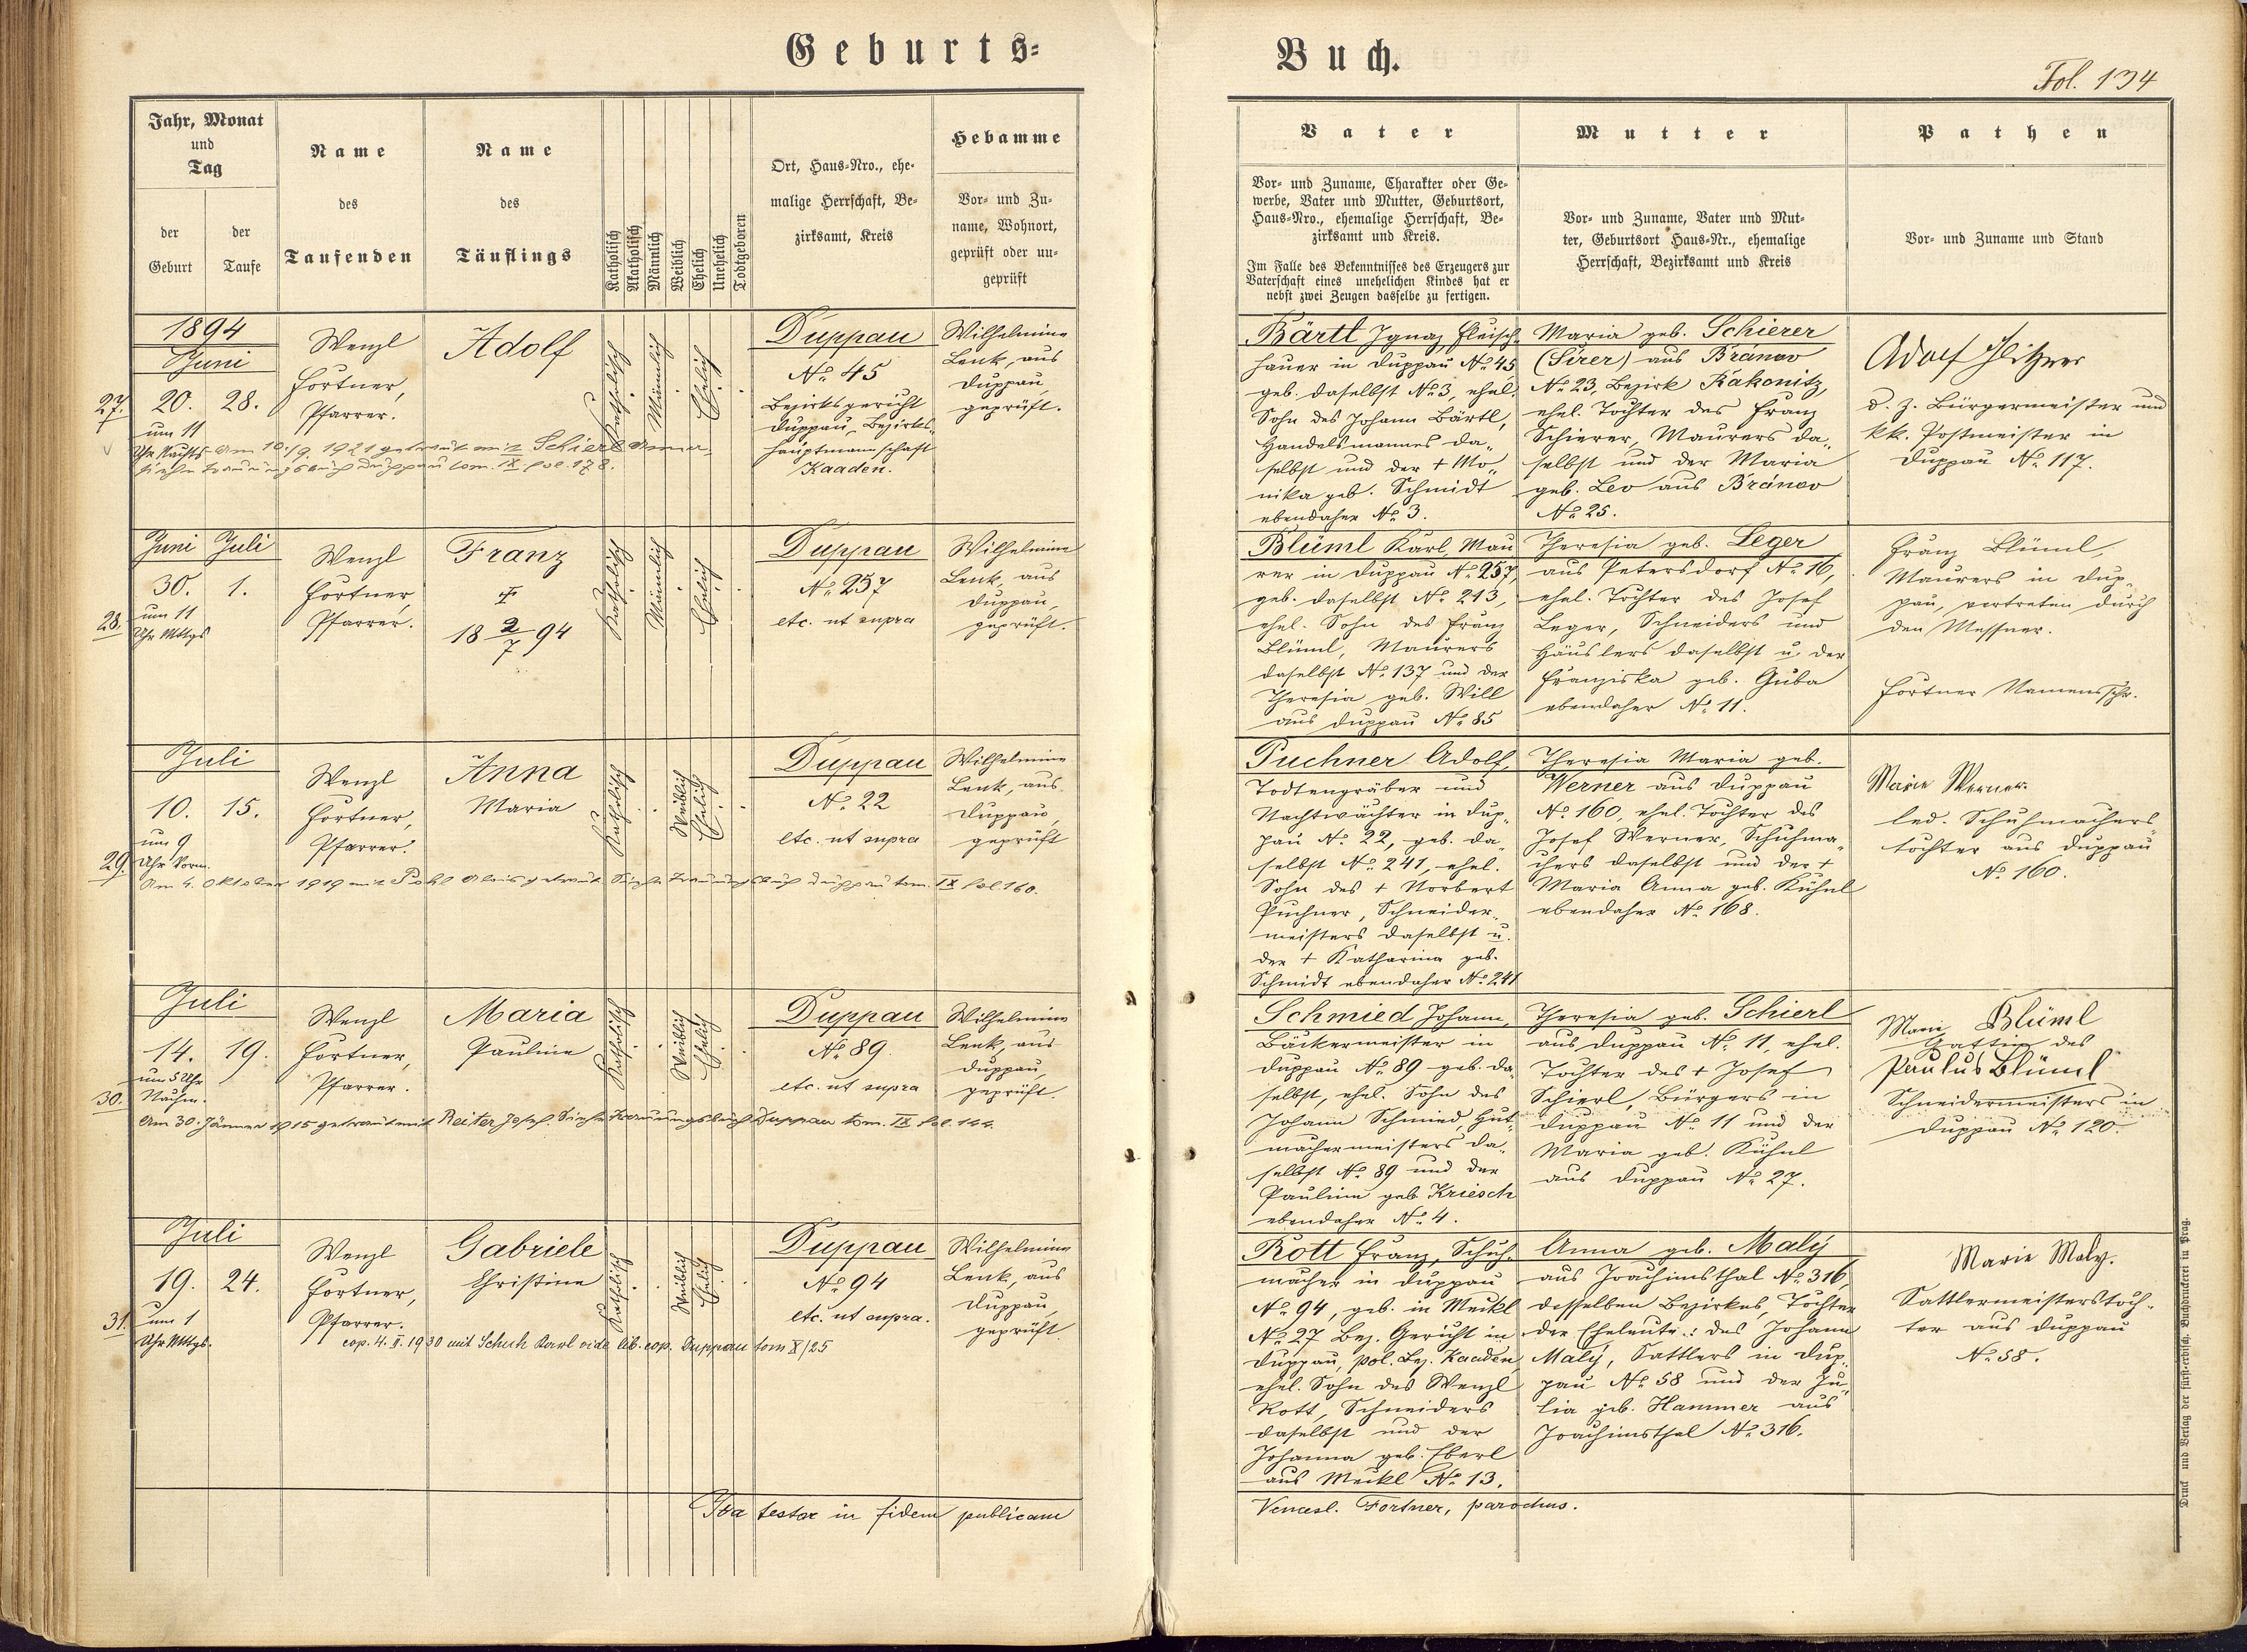 Geburts=
Buch.
Fol. 134
Jahr, Monat
und
Tag
der
Geburt
der
Taufe
Name
des
Taufenden
Name
des
Täuflings
Katholisch
Akatholisch
Männlich
Weiblich
Ehelich
Unehelich
Todtgeboren
Ort, Haus-Nro., ehe-
malige Herrschaft, Be-
zirksamt, Kreis
Hebamme
Vor- und Zu-
name, Wohnort,
geprüft oder un-
geprüft
Vater
Vor- und Zuname, Charakter oder Ge-
werbe, Vater und Mutter, Geburtsort,
Haus-Nro., ehemalige Herrschaft, Be-
zirksamt und Kreis.
Im Falle des Bekenntnisses des Erzeugers zur
Vaterschaft eines unehelichen Kindes hat er
nebst zwei Zeugen dasselbe zu fertigen.
Mutter
Vor- und Zuname, Vater und Mut-
ter, Geburtsort Haus-Nr., ehemalige
Herrschaft, Bezirksamt und Kreis
Pathen
Vor- und Zuname und Stand
1894
Juni
27.
20. 28.
um 11
Uhr Nachts
Wenzl
Fortner,
Pfarrer.
Adolf
Katholisch
Männlich
Ehelich
Duppau
No. 45
Bezirksgericht
Duppau, Bezirks-
hauptmannschaft
Kaaden.
Wilhelmine
Lenk, aus
Duppau,
geprüft.
Am 10./9. 1921 getraut mit Schierl Anna,
siehe Trauungsbuch Duppau tom. IX. fol. 178.
Bärtl Ignaz, Fleisch-
hauer in Duppau No. 45
geb. daselbst No. 3, ehel.
Sohn des Johann Bärtl,
Handelsmannes da-
selbst und der + Mo-
nika geb. Schmidt
ebendaher No. 3.
Maria geb. Schierer
(Širer) aus Bránov
No. 23, Bezirk Rakonitz,
ehel. Tochter des Franz
Schierer, Maurers da-
selbst und der Maria
geb. Lev aus Bránov
No. 25.
Adolf
d. Z. Bürgermeister und
kk. Postmeister in
Duppau No. 117.
Juni Juli
28.
30. 1.
um 11
Uhr Mttgs
Wenzl
Fortner,
Pfarrer.
Franz
18 2/7 94
Katholisch
Männlich
Ehelich
Duppau
No. 257
etc. ut supra
Wilhelmine
Lenk, aus
Duppau,
geprüft.
Blüml Karl, Mau
rer in Duppau No. 257,
geb. daselbst No. 213,
ehel. Sohn des Franz
Blüml, Maurers
daselbst No. 137 und der
Theresia geb. Will
aus Duppau No. 85
Theresia geb. Leger
aus Petersdorf No. 16,
ehel. Tochter des Josef
Leger, Schneiders und
Häuslers daselbst u. der
Franziska geb. Guba
ebendaher No. 11.
Franz Blüml,
Maurers in Dup-
pau, vertreten durch
den Messner.
Fortner Namensschr.
Juli
29.
10. 15.
um 9
Uhr Vorm.
Wenzl
Fortner,
Pfarrer.
Anna
Maria
Katholisch
Weiblich
Ehelich
Duppau
No. 22
etc. ut supra
Wilhelmine
Lenk, aus
Duppau,
geprüft
Am 4. Oktober 1919 mit Pohl Alois getraut. Siehe Trauungsbuch Duppau tom. IX fol 160.
Puchner Adolf,
Todtengräber und
Nachtwächter in Dup-
pau No. 22, geb. da-
selbst No. 241, ehel.
Sohn des + Norbert
Puchner, Schneider-
meisters daselbst u.
der + Katharina geb.
Schmidt ebendaher No. 241
Theresia Maria geb.
Werner aus Duppau
No. 160, ehel. Tochter des
Josef Werner, Schuhma-
chers daselbst und der +
Maria Anna geb. Kühnl
ebendaher No. 168.
Marie Werner
led. Schuhmachers-
tochter aus Duppau
No. 160.
Juli
30.
14. 19.
um 5 Uhr
Nachm.
Wenzl
Fortner,
Pfarrer.
Maria
Pauline
Katholisch
Weiblich
Ehelich
Duppau
No. 89.
etc. ut supra
Wilhelmine
Lenk, aus
Duppau,
geprüft.
Am 30. Jänner 1915 getraut mit Reiter Josef. Siehe Trauungsbuch Duppau tom. IX fol. 144.
Schmied Johann,
Bäckermeister in
Duppau No. 89 geb. da-
selbst, ehel. Sohn des
Johann Schmied, Hut-
machermeisters da-
selbst No. 89 und der
Pauline geb Kriesch
ebendaher No. 4.
Theresia geb. Schierl
aus Duppau No. 11, ehel.
Tochter des + Josef
Schierl, Bürgers in
Duppau No. 11 und der
Maria geb. Kühnl
aus Duppau No. 27.
Marie Blüml
Gattin des
Paulus Blüml
Schneidermeisters in
Duppau No. 120.
Juli
31.
19. 24.
um 1
Uhr Mttgs.
Wenzl
Fortner,
Pfarrer.
Gabriele
Christine
Katholisch
Weiblich
Ehelich
Duppau
No. 94
etc. ut supra.
Wilhelmine
Lenk, aus
Duppau,
geprüft.
cop. 4. II. 1930 mit Schuh Karl vide lib. cop. Duppau tom X/25
Rott Franz, Schuh-
macher in Duppau
No. 94, geb. in Meckl
No. 27 Bez. Gericht in
Duppau, pol. Bez. Kaaden,
ehel. Sohn des Wenzl
Rott, Schneiders
daselbst und der
Johanna geb. Eberl
aus Meckl No. 13.
Anna geb. Malý
aus Joachimsthal No. 316,
desselben Bezirkes, Tochter
der Eheleute: des Johann
Malý, Sattlers in Dup-
pau No. 58 und der Ju-
lia geb. Hammer aus
Joachimsthal No. 316.
Marie Maly.
Sattlermeisterstoch-
ter aus Duppau
No. 58.
Ita testor in fidem publicam
Vencesl. Fortner, parochus.
Druck und Verlag der fürst-erzbisch. Buchdruckerei in Prag.